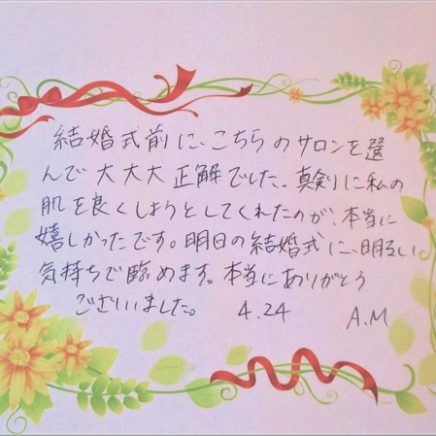 結婚式前に、こちらのサロンを選
んで大大大正解でした。真剣に私の
肌を良くしようとしてくれたのが、本当に
嬉しかったです。明日の結婚式に、明るい
気持ちで臨めます。本当にありがとう
ございました。 4.24 A.M